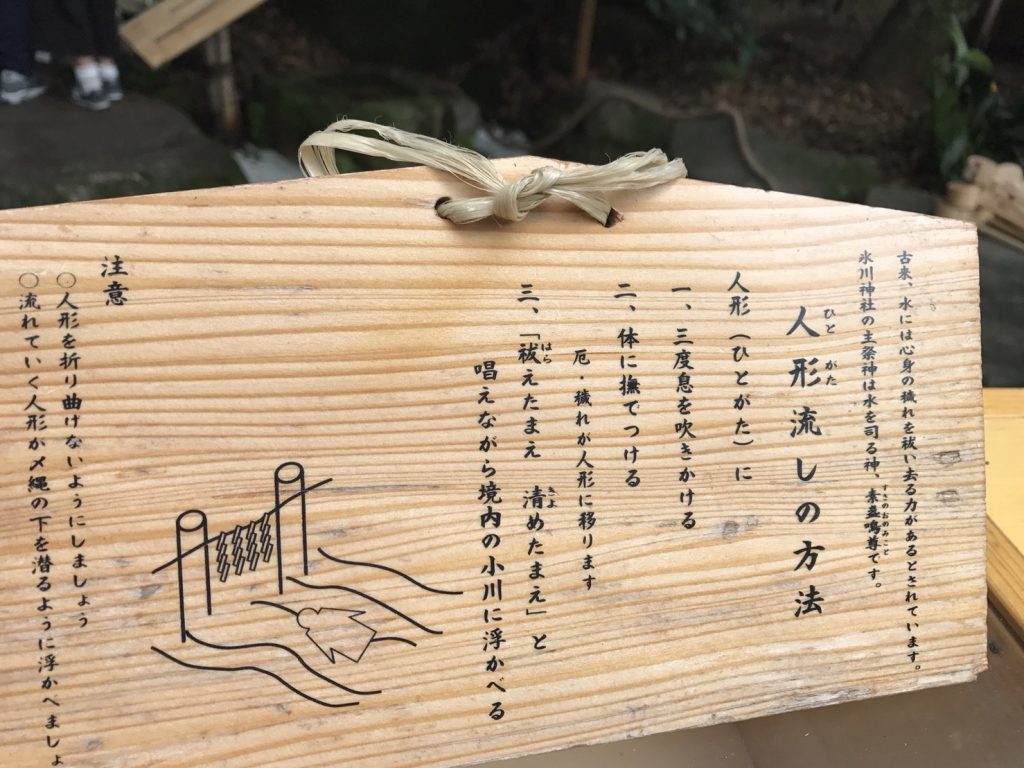 古来、水には心身の穢れを祓い去る力があるとされています。
氷川神社の主祭神は水を司る神、素盞嗚尊です。
すさのおのみこと
人形流しの方法
ひとがた
人形（ひとがた）に
一、三度息を吹きかける
二、体に撫でつける
厄・穢れが人形に移ります
三、「祓えたまえ 清めたまえ」と
はら
きよ
唱えながら境内の小川に浮かべる
注意
○人形を折り曲げないようにしましょう
○流れていく人形が〆縄の下を潜るように浮かべましょ